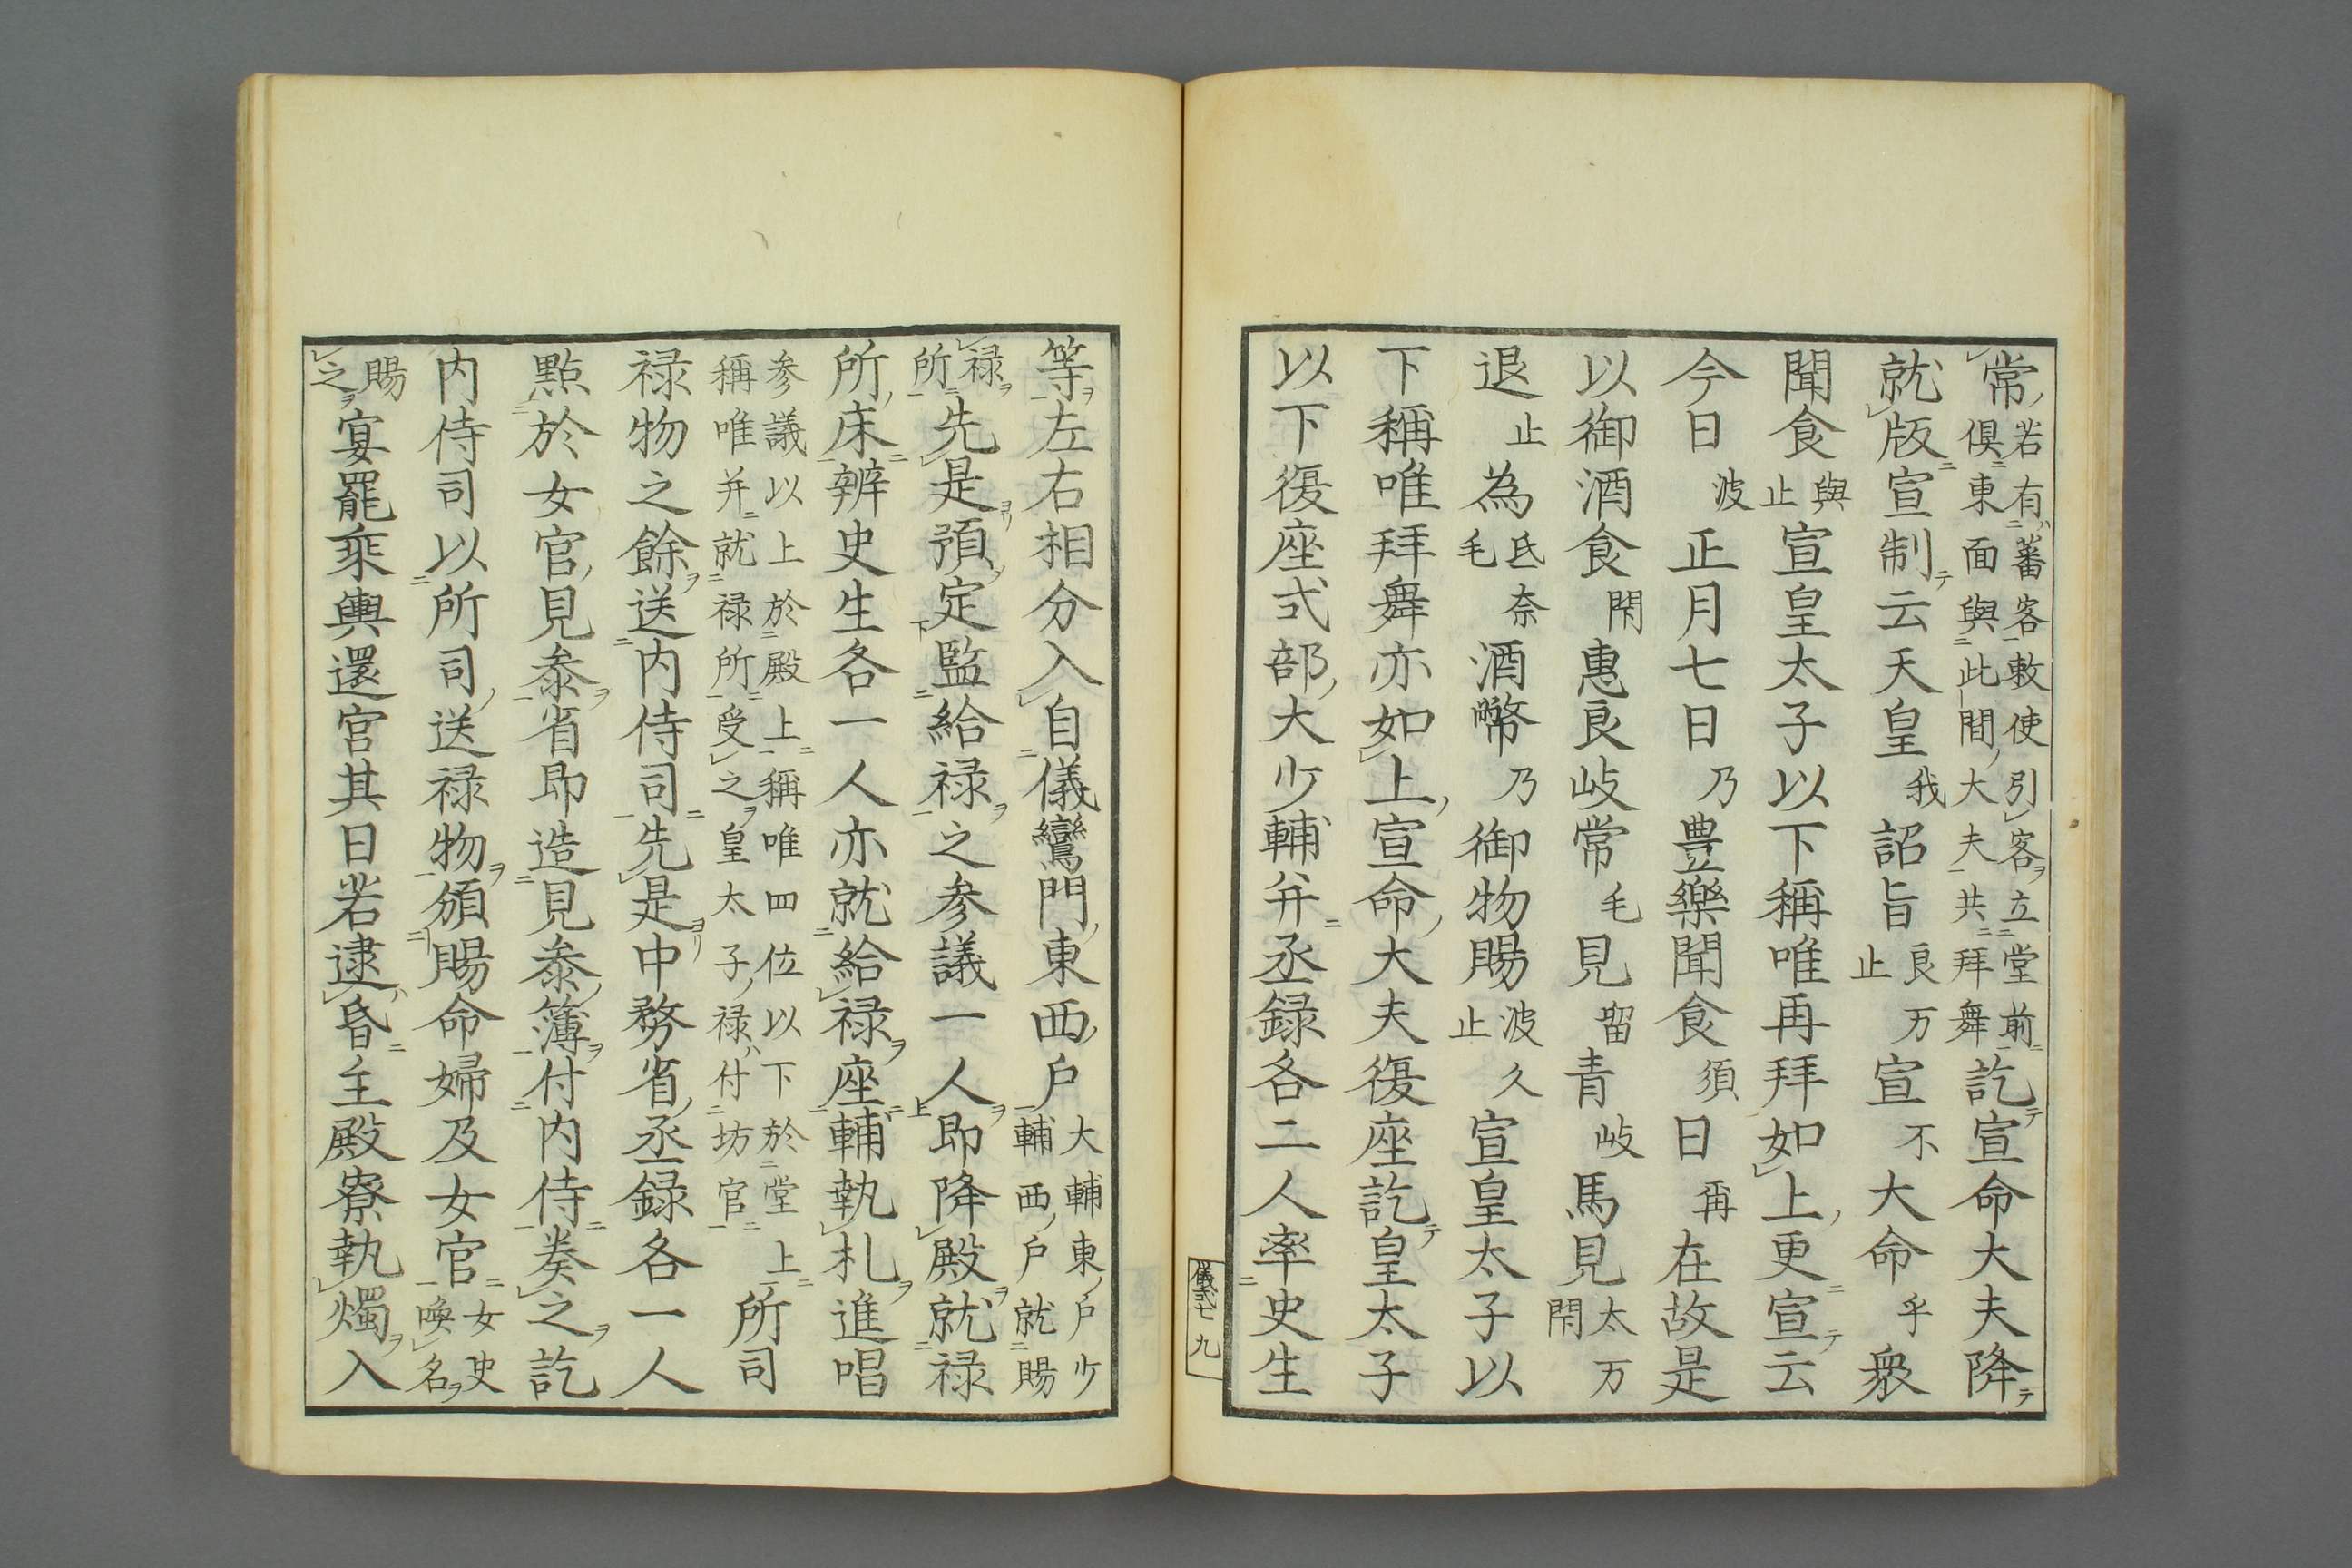 常若有蕃客敕使引客立堂前倶東面與此間大夫共拜舞訖宣命大夫降
就版宣制云天皇我詔旨良万止宣不大命乎衆
聞食與止宣皇太子以下稱唯再拜如上更宣云
今日波正月七日乃豊樂聞食須日再在故是
以御酒食閇惠良岐常毛見留青岐馬見太万閇
退止為氐奈毛酒幣乃御物賜波久止宣皇太子以
下稱唯拜舞亦如上宣命大夫復座訖皇太子
以下復座式部大少輔并丞録各二人率史生
儀式七 九
等左右相分入自儀鸞門東西戸大輔東戸少輔西戸就賜
禄所先是預定監給禄之参議一人即降殿就禄
所床辨史生各一人亦就給禄座輔執札進唱
参議以上於殿上稱唯四位以下於堂上稱唯并就禄所受之皇太子禄付坊官所司
禄物之餘送内侍司先是中務省丞録各一人
點於女官見参省即造見参簿付内侍奏之訖
内侍司以所司送禄物頒賜命婦及女官女史喚名
賜之宴罷乘輿還宮其日若逮昏主殿寮執燭入